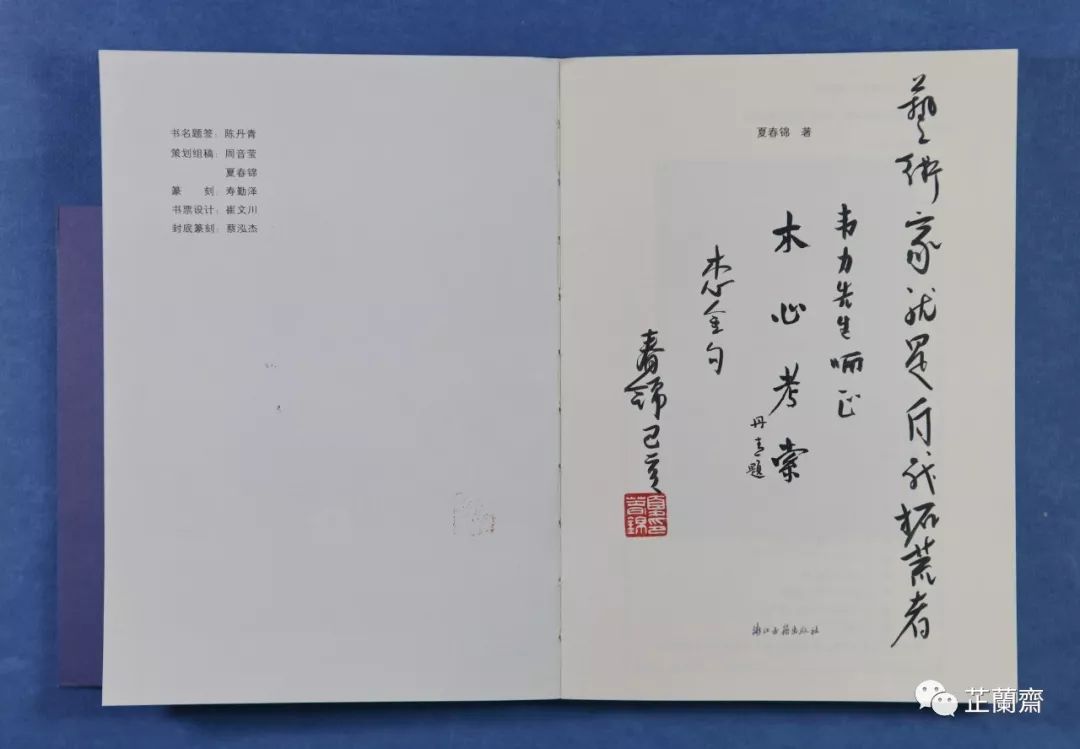 书名题签：陈丹青
策划组稿：周音莹
夏春锦
篆　　刻：寿勤泽
书票设计：崔文川
封底篆刻：蔡泓杰
藝術家就是自我拓荒者
夏春锦　著
韦力先生哂正
木心考索
丹青題
木心金句
春錦己亥
夏春錦印
浙江古籍出版社
芷蘭齋